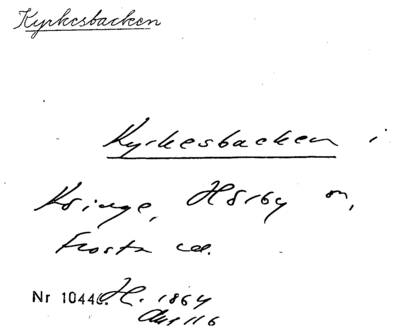 Kyrkesbacken
Kyrkesbacken i
Kringe, Hörby sn,
Frosta hd.
Nr 1044 H. 1864
116